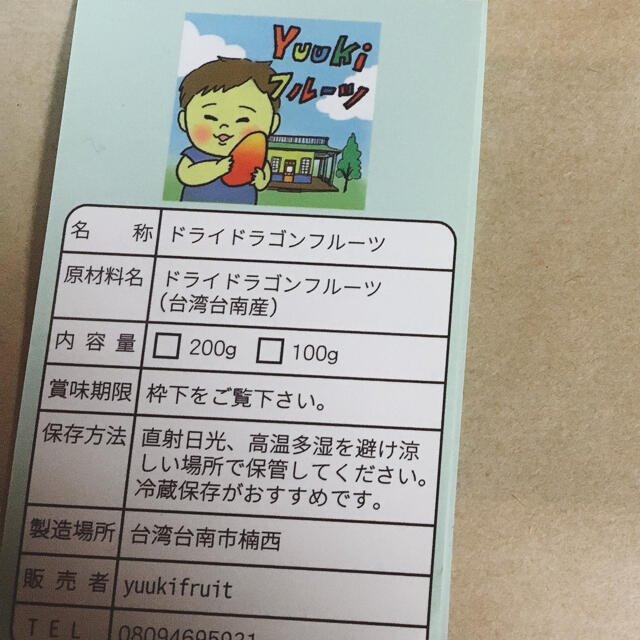 Yuuki
フルーツ
名称 ドライドラゴンフルーツ
原材料名 ドライドラゴンフルーツ
（台湾台南産）
内容量 □ 200g □ 100g
賞味期限 枠下をご覧下さい。
保存方法 直射日光、高温多湿を避け涼
しい場所で保管してください。
冷蔵保存がおすすめです。
製造場所 台湾台南市楠西
販売者 yuukifruit
TEL